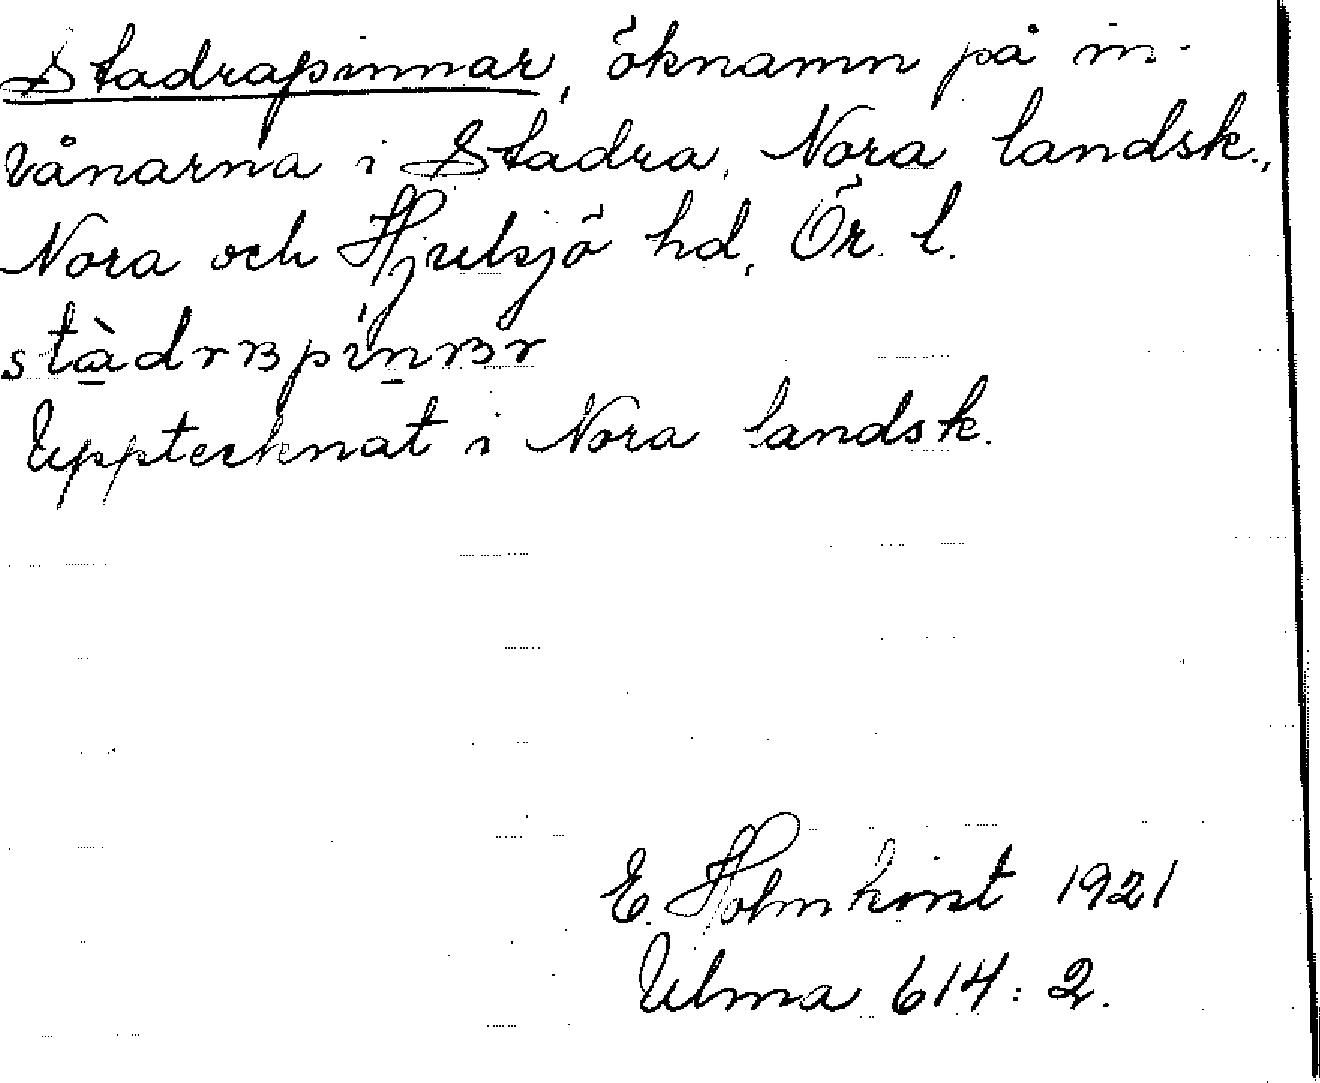 Stadrapinnar, öknamn på in-
vånarna i Stadra, Nora landsk.,
Nora och Hjulsjö hd, Ör. l.
stàdrɐpínɐr
Upptecknat i Nora landsk.
E. Holmkvist 1921
Ulma 614: 2.